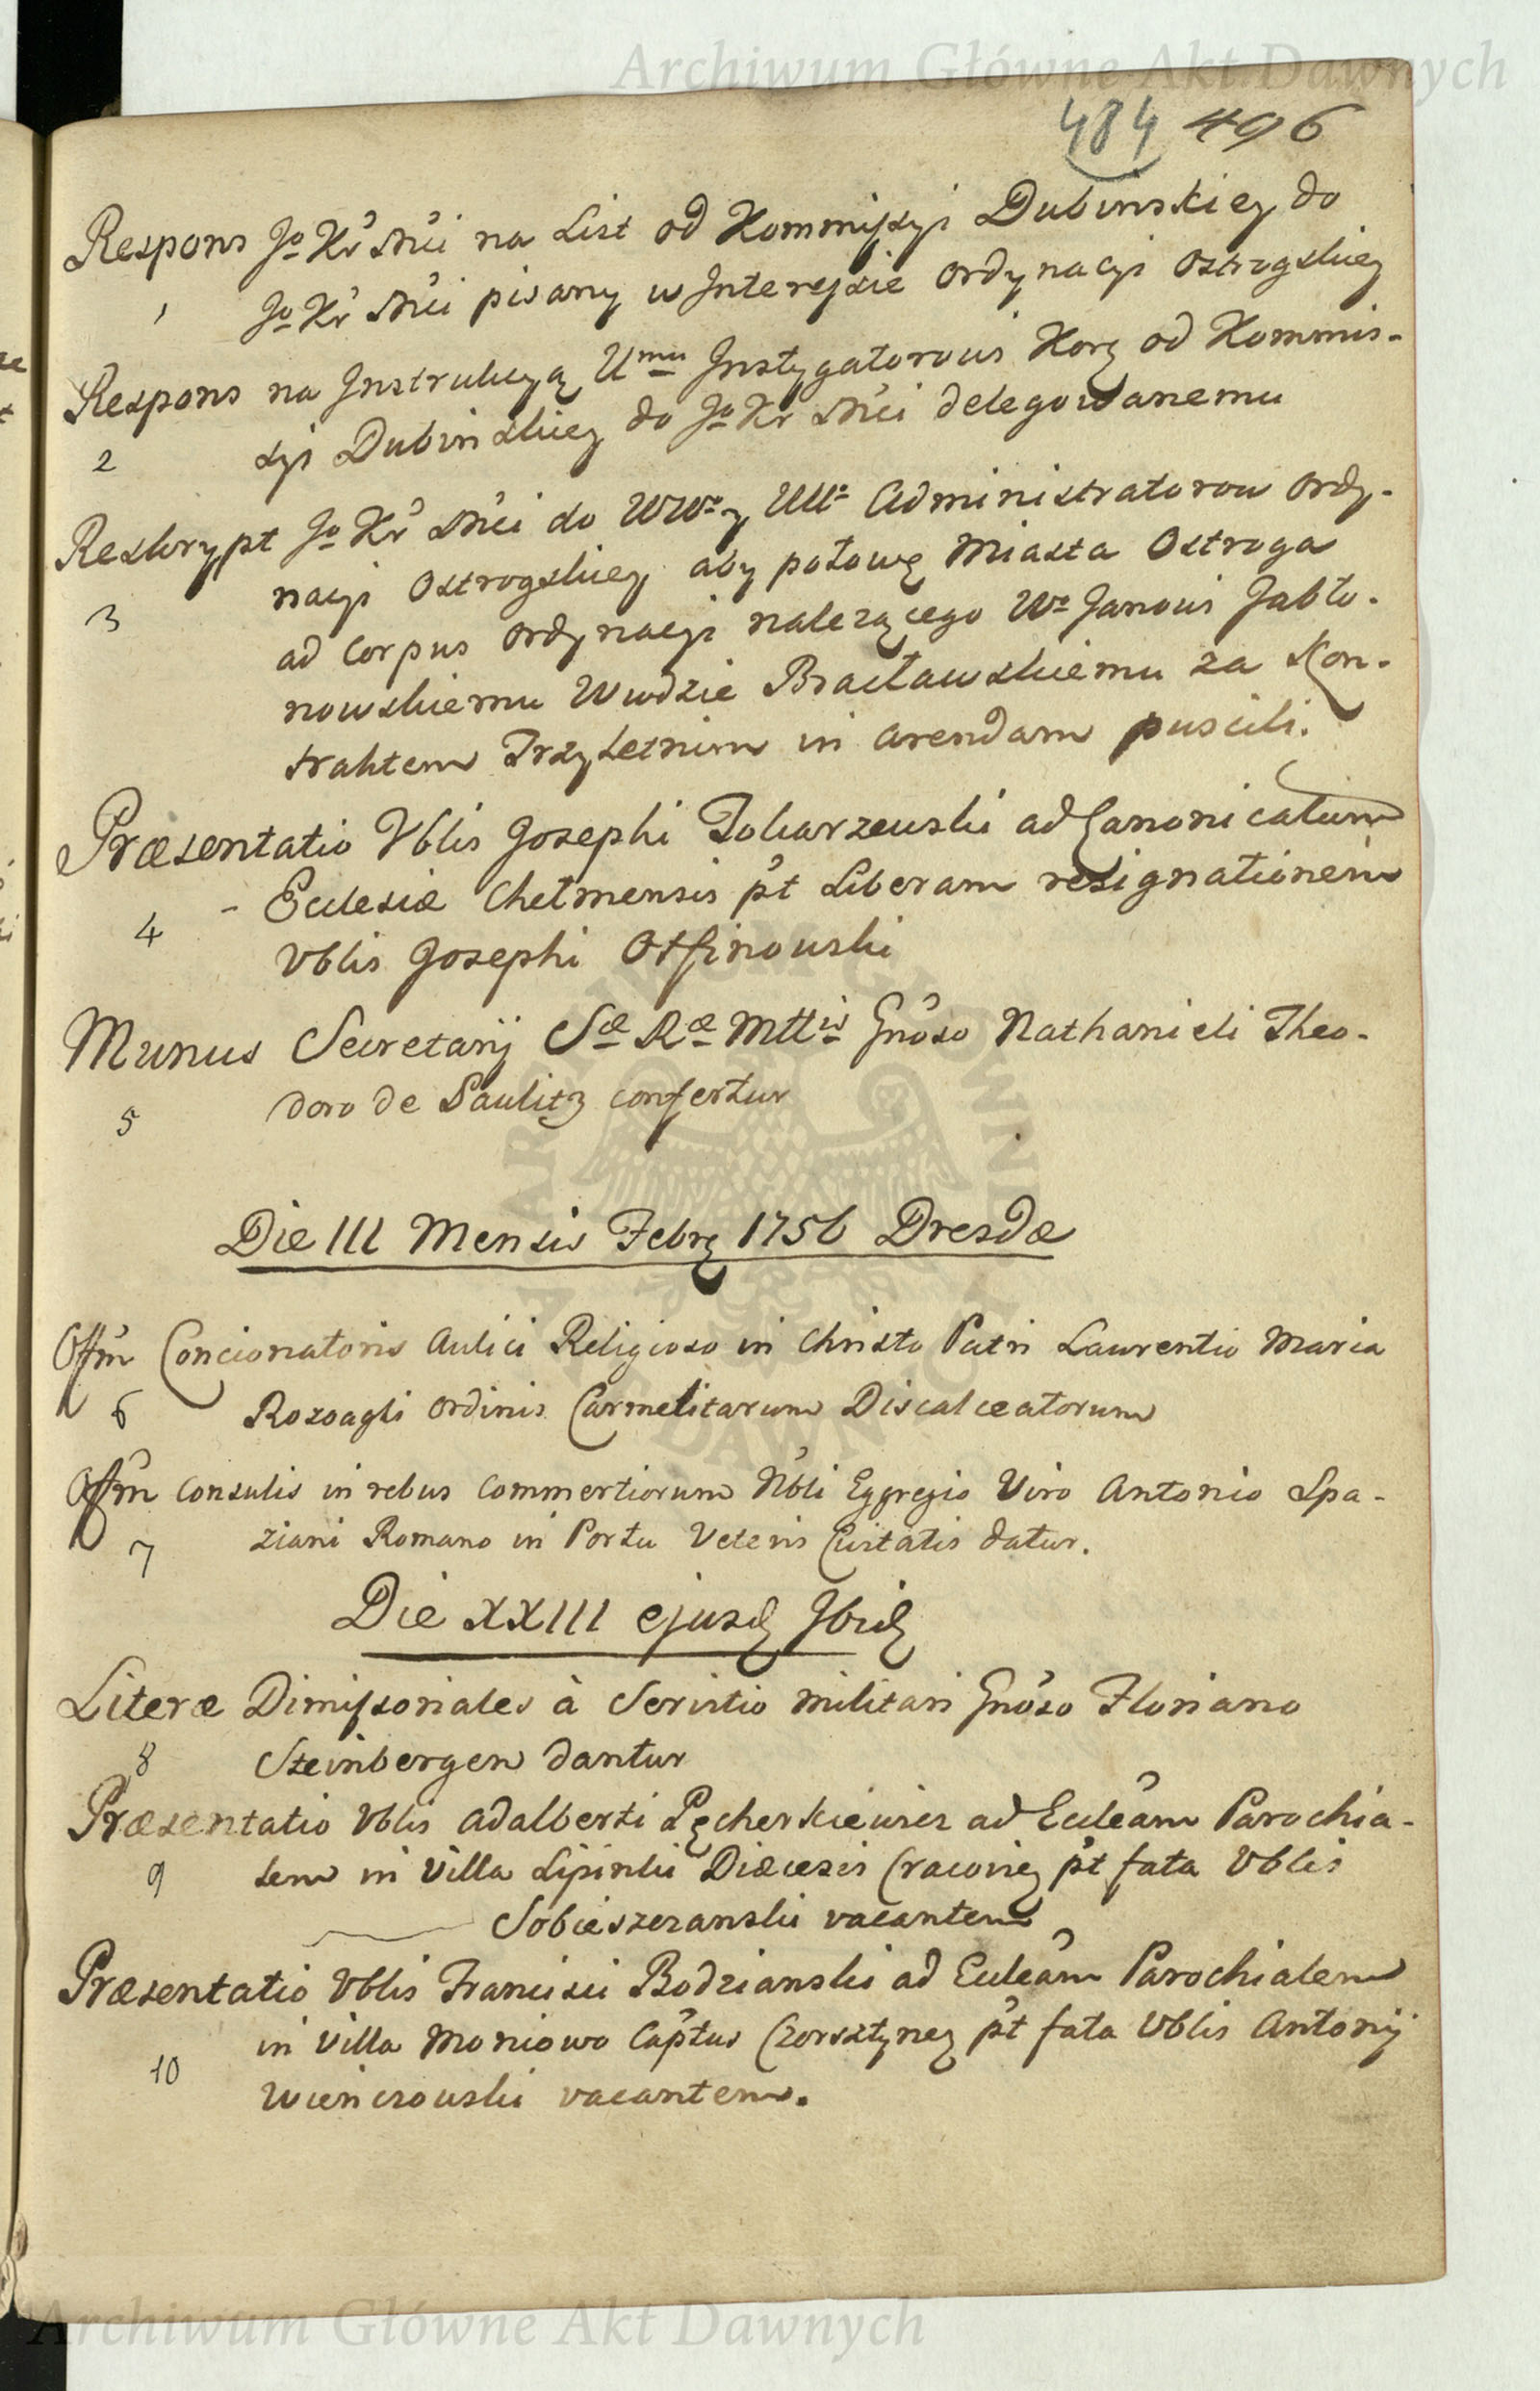 Archiwum Główne Akt Dawnych
484 496
Respons Jo Kr Mci na List od Kommissyi Dubinskiey do
1 Jo Kr Mci pisany w Interessie Ordynacyi Ostrogskiey
Respons na Instrukcyą Umu Instygatorowi Korę od Kommis-
2 syi Dubinskiey do Jo Kr Mci delegowanemu
Reskrypt Jo Kr Mci do WW y UU Administratorow Ordy-
nacyi Ostrogskiey aby połowę Miasta Ostroga
3 ad Corpus Ordynacyi nalezącego Wo Janowi Jabło-
nowskiemu Wwdzie Bracławskiemu za Kon-
traktem Trzyletnim in arendam puscili.
Præsentatio Vblis Josephi Tokarzewski ad Canonicatum
Ecclesiæ Chełmensis pt Liberam resignationem
4 Vblis Josephi Otfinowski
Munus Secretarij Sæ Ræ Mttis Gnoso Nathanieli Theo-
5 doro de Saulitz confertur
Die III Mensis Febrę 1756 Dresdæ
Offm Concionatoris Aulici Religioso in Christo Patri Laurentio Maria
6 Rozoagli Ordinis Carmelitarum Discalceatorum
Offm Consulis in rebus Commertiorum Nbli Eggregio Viro Antonio Spa-
7 ziani Romano in Portu Veteris Civitatis datur.
Die XXIII ejusd Ibid
Literæ Dimissoriales à Servitio militari Gnoso Floriano
8 Steinbergen dantur
Præsentatio Vblis Adalberti Pęcherkiewicz ad Eccleam Parochia-
9 lem in Villa Lipinki Diæcesis Cracovieę pt fata Vblis
Sobieszczanski vacantem
Præsentatio Vblis Francisci Bodzianski ad Eccleam Parochialem
in Villa Moniowo Captus Czorsztyneę pt fata Vblis Antonij
10 Wienczowski vacantem.
Archiwum Główne Akt Dawnych